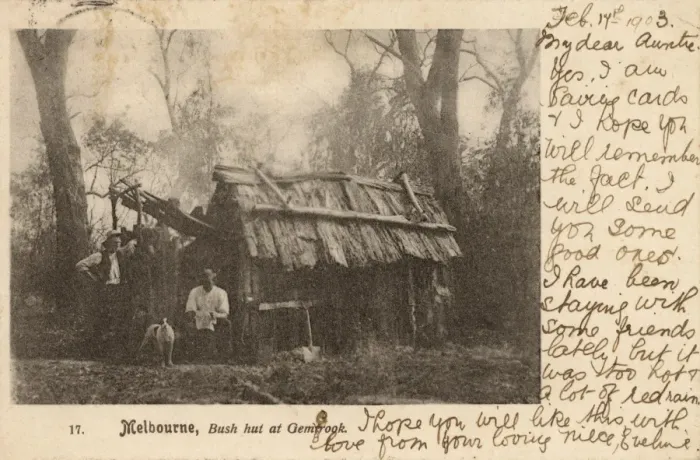 Feb. 14th 1903.
My dear Auntie.
Yes, I am
saving cards
& I hope you
will remember
the fact. I
will send
you some
good ones.
I have been
staying with
some friends
lately, but it
was too hot &
a lot of red rain.
I hope you will like this with
love from your loving niece, Eveline.
17. Melbourne, Bush hut at Gembrook.